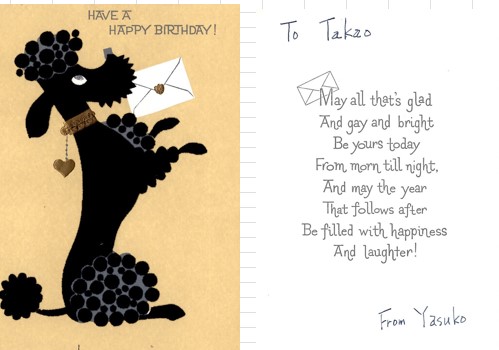 HAVE A
HAPPY BIRTHDAY!
To Takao
May all that's glad
And gay and bright
Be yours today
From morn till night,
And may the year
That follows after
Be filled with happiness
And laughter!
From Yasuko